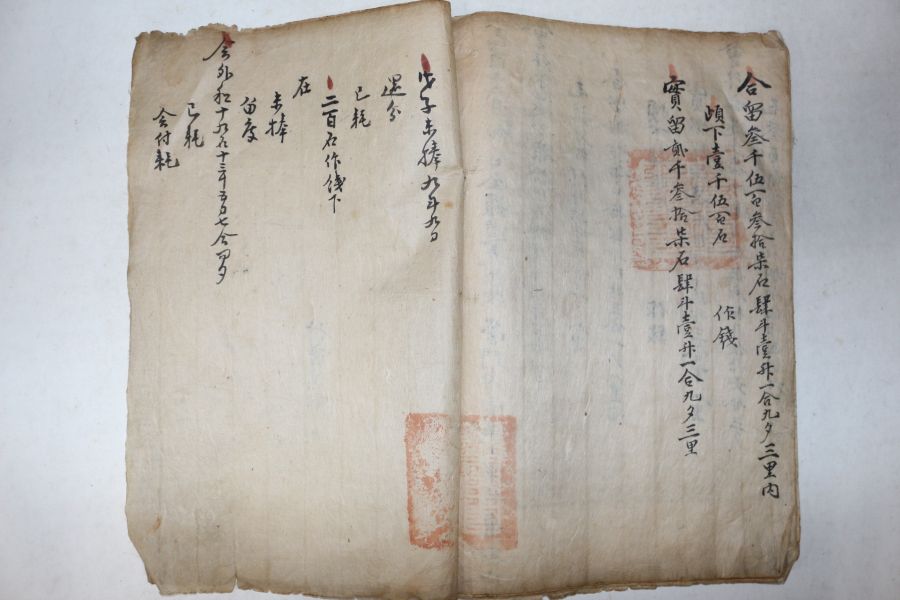 合留叄千伍百叄拾柒石肆斗壹升一合九夕三里內
頉下壹千伍百石 作錢
實留貳千叄拾柒石肆斗壹升一合九夕三里
戊子未捧九斗九刀
還分
已耗
二百石作錢下
在
未捧
留庫
会外租十九石十三斗五刀七合四夕
已耗
会付耗